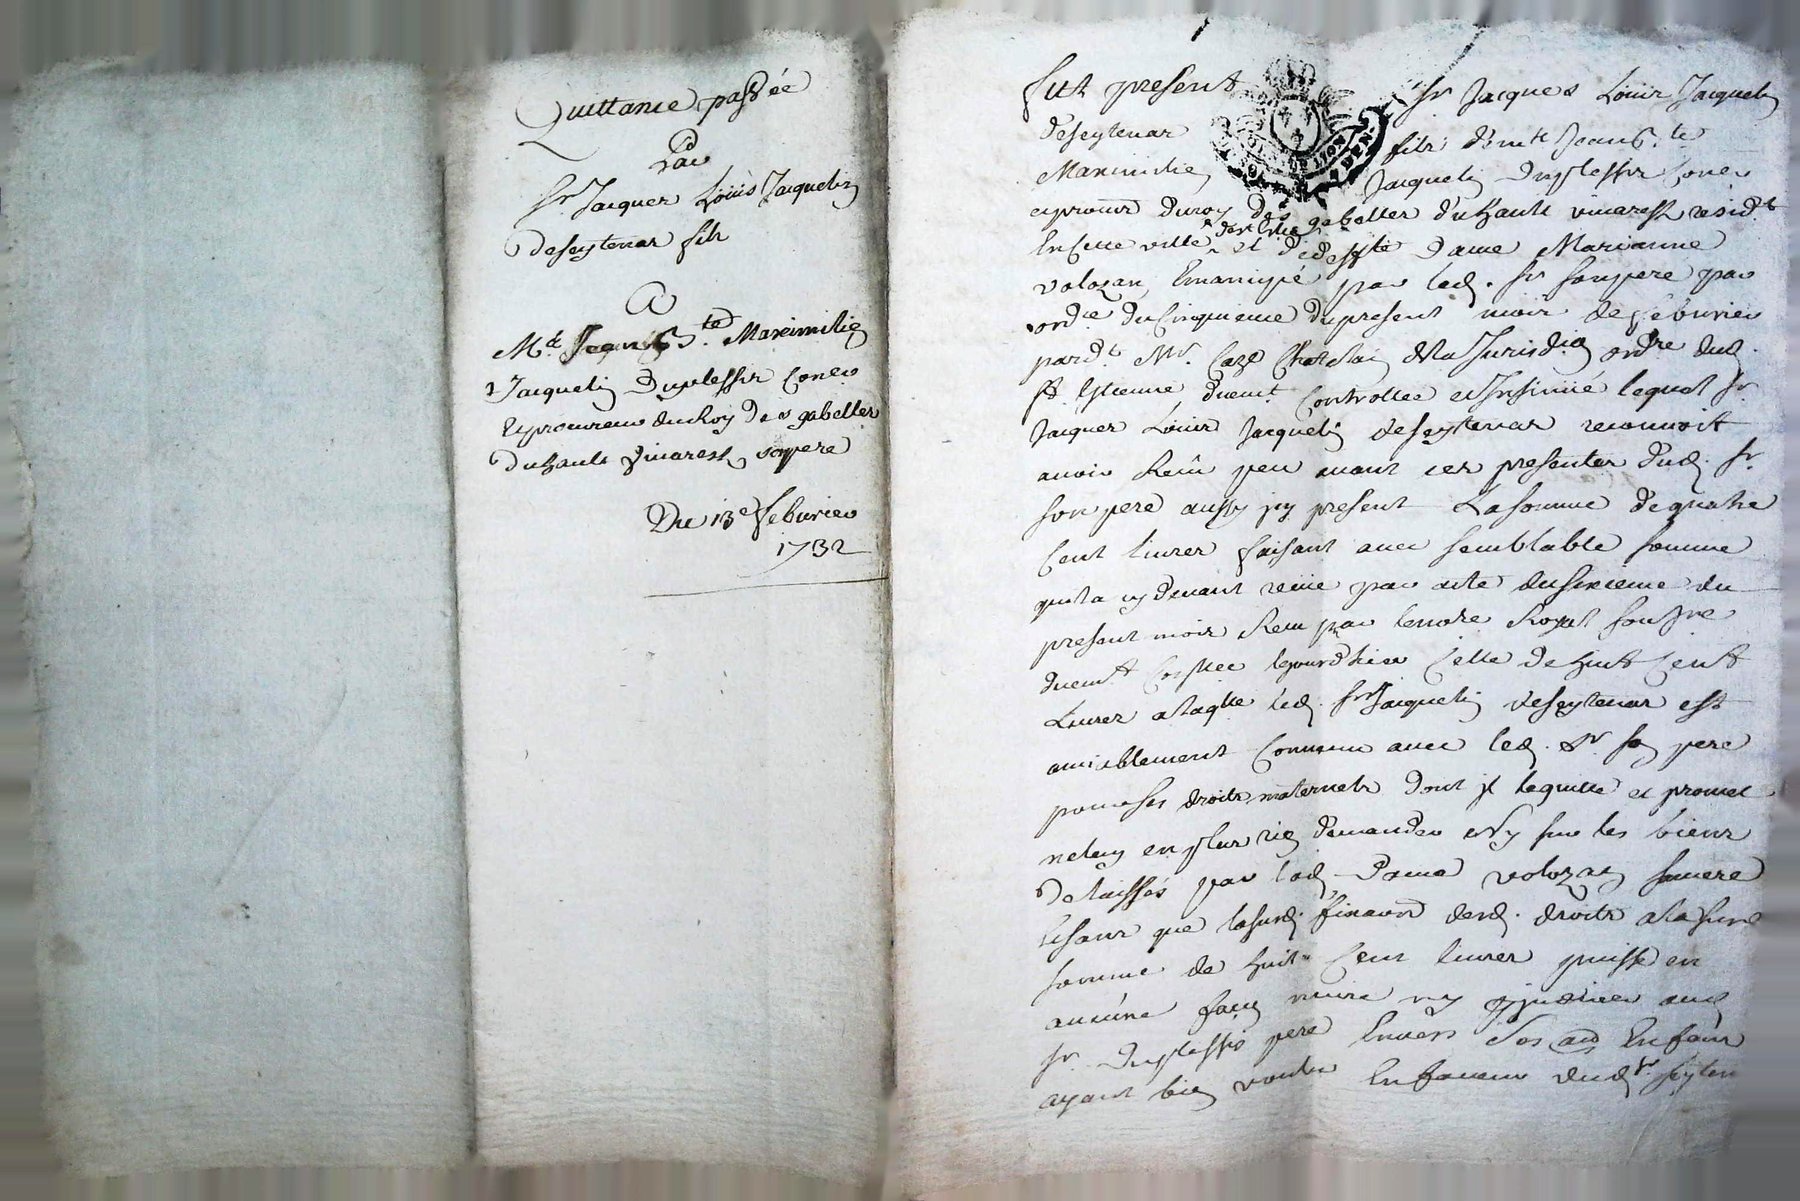 Quittance passée
Par
Sr. Jacques Loüis Jacquelin
deseytenas fils
A
Me. Jean Bte. Maximilien
Jacquelin Duplessis Coner
et procureur du Roy des gabelles
du hault vivarest, son pere
Du 13e febvrier
1732
fut present Sr. Jacques Loüis Jacquelin
deseytenas fils d'autre Jean B.te
Maximilien Jacquelin Duplessis Coner
et procur du roy des gabelles du hault vivarest resid.t
en cette ville et de Dame Marianne
volozan, Emancipé par led. Sr. son pere par
ord.ce du Cinquieme du present mois de febvrier
pard.t Mr. Caze Chatelain de la Jurisd.on ord.re dud.
St. Estienne, duem.t Controllée et Insinuée lequel Sr.
Jacques Loüis Jacquelin deseytenas reconnoit
avoir Reçu peu avant ces presentes dud. Sr.
son pere aussy jcy present La somme de quatre
Cent livres faisant avec semblable somme
quil a cy devant reçüe par acte du sixieme du
present mois Reçu par le no.re Royal sousig.ne
duem.t Con.llee le jourdhier Celle de huit Cent
Livres a laq.lle led. Sr. Jacquelin deseytenas est
amiablement Convenu avec led. Sr. son pere
pour ses droits maternels dont jl le quitte et promet
ne luy en plus rien demander Ny sur les biens
delaissés par lad. Dame volozan sa mere
Et sans que lasusd. fixation desd. droits a la susd.
somme de huit Cent livres puisse en
aucune façon nuire ny prejudicier aud.
Sr. Duplessis pere Envers ses au.es Enfans
ayant bien voulu En faveur dud. Sr. seyten